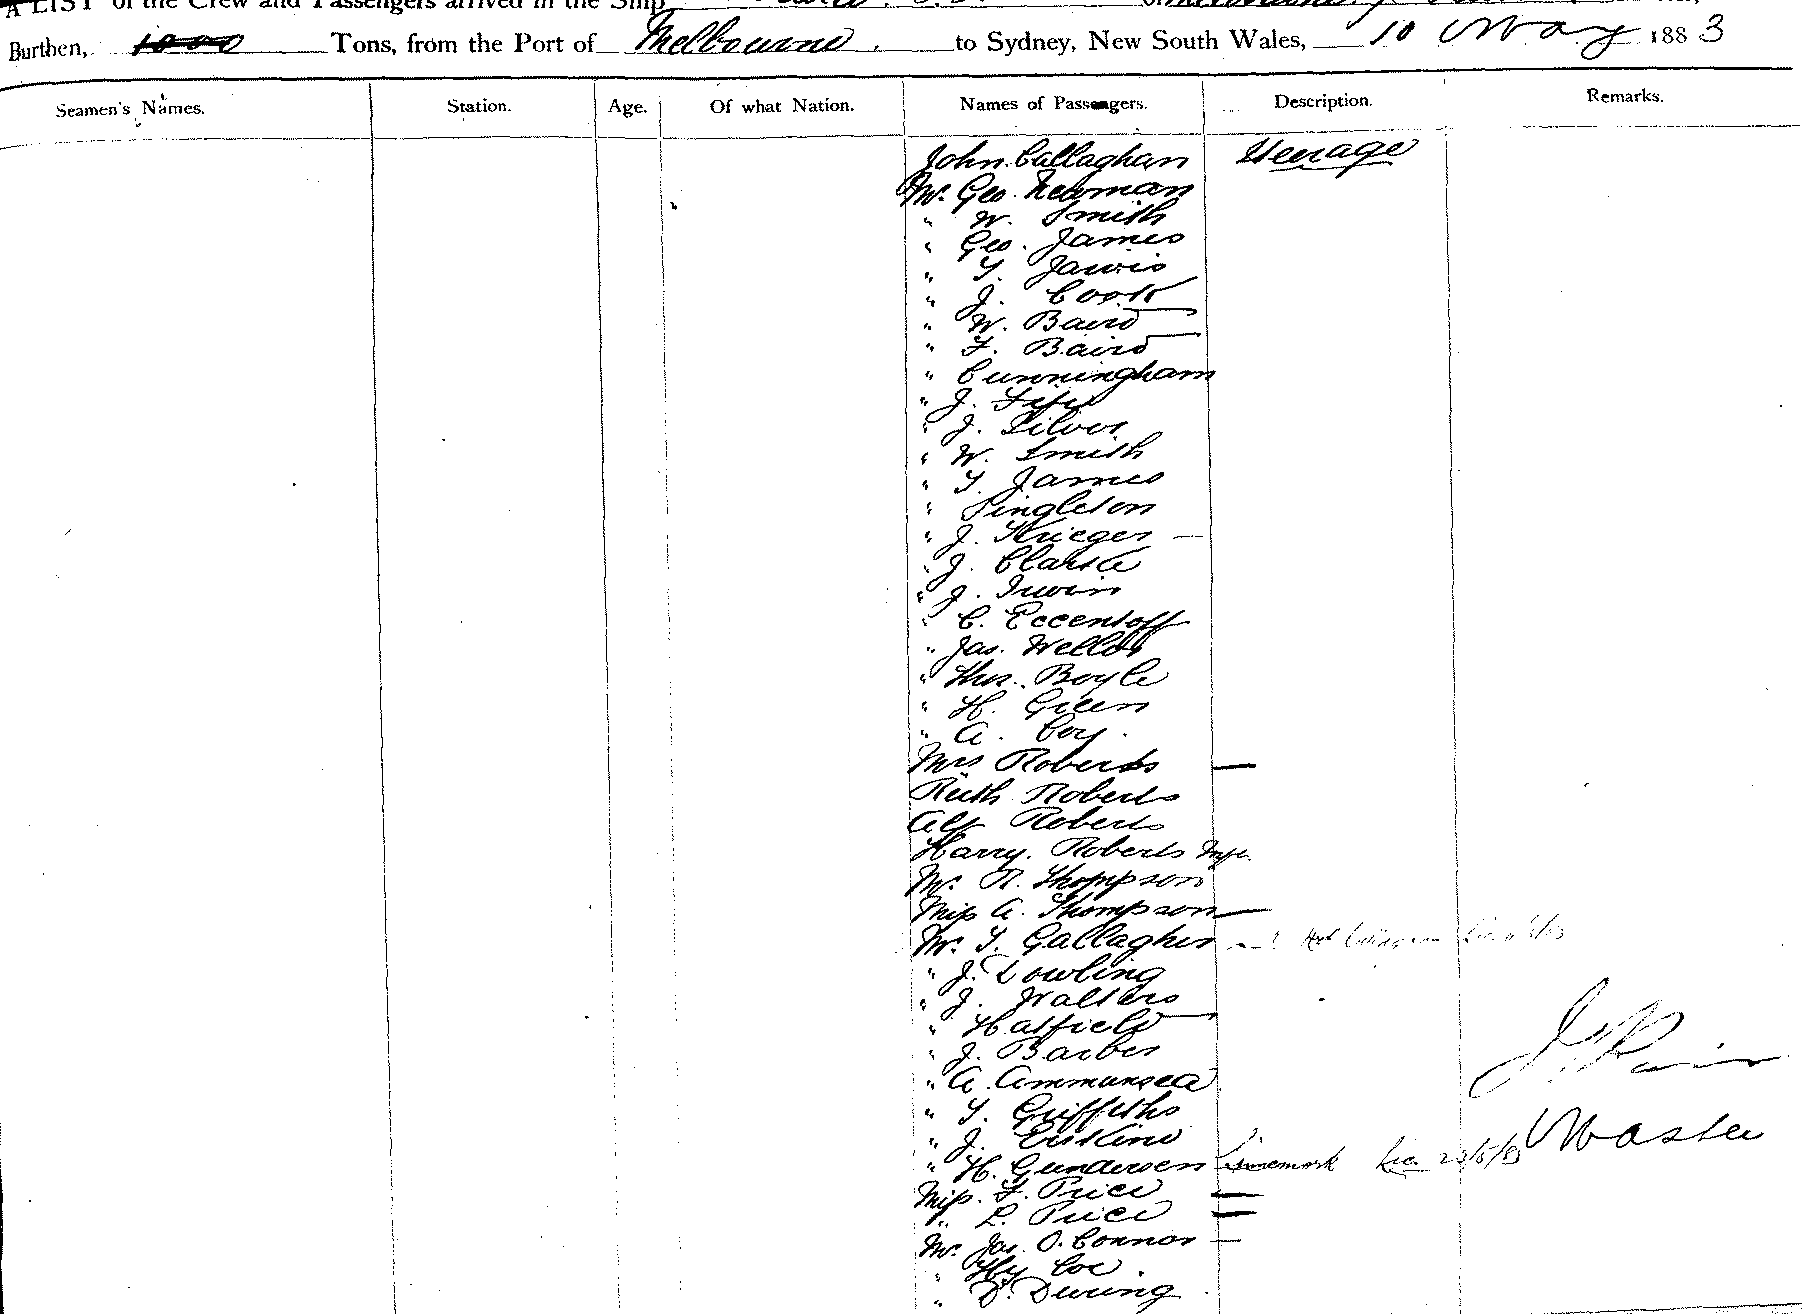 A LIST of the Crew and Passengers arrived in the Ship
Burthen, 1000 Tons, from the Port of Melbourne to Sydney, New South Wales, 10 May 1883
Seamen's Names. Station. Age. Of what Nation. Names of Passengers. Description. Remarks.
John Callaghan Steerage
Mr. Geo. Newman
" W. Smith
" Geo. James
" T. Jarvis
" J. Cook
" W. Baird
" F. Baird
" Cunningham
" J. Fife
" J. Silver
" W. Smith
" T. James
" Singleton
" J. Krieger
" J. Clarke
" J. Irwin
" C. Eccentoff
" Jas. Weller
" Thos. Boyle
" H. Green
" A. Coy.
Mrs Roberts
Ruth Roberts
Alf Roberts
Harry. Roberts Inft.
Mr. R. Thompson
Miss A. Thompson
Mr. T. Gallagher
" J. Dowling
" J. Walters
" Hatfield
" J. Barber
" A. Ammunsea
" T. Griffiths
" J. Erskine
" H. Gundersen
Master
Miss. F. Price
" L. Price
Mr. Jas. O. Connor
" Hy Coe.
" D. During